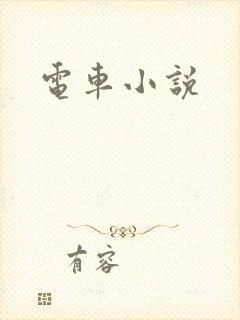 電車小說
有容